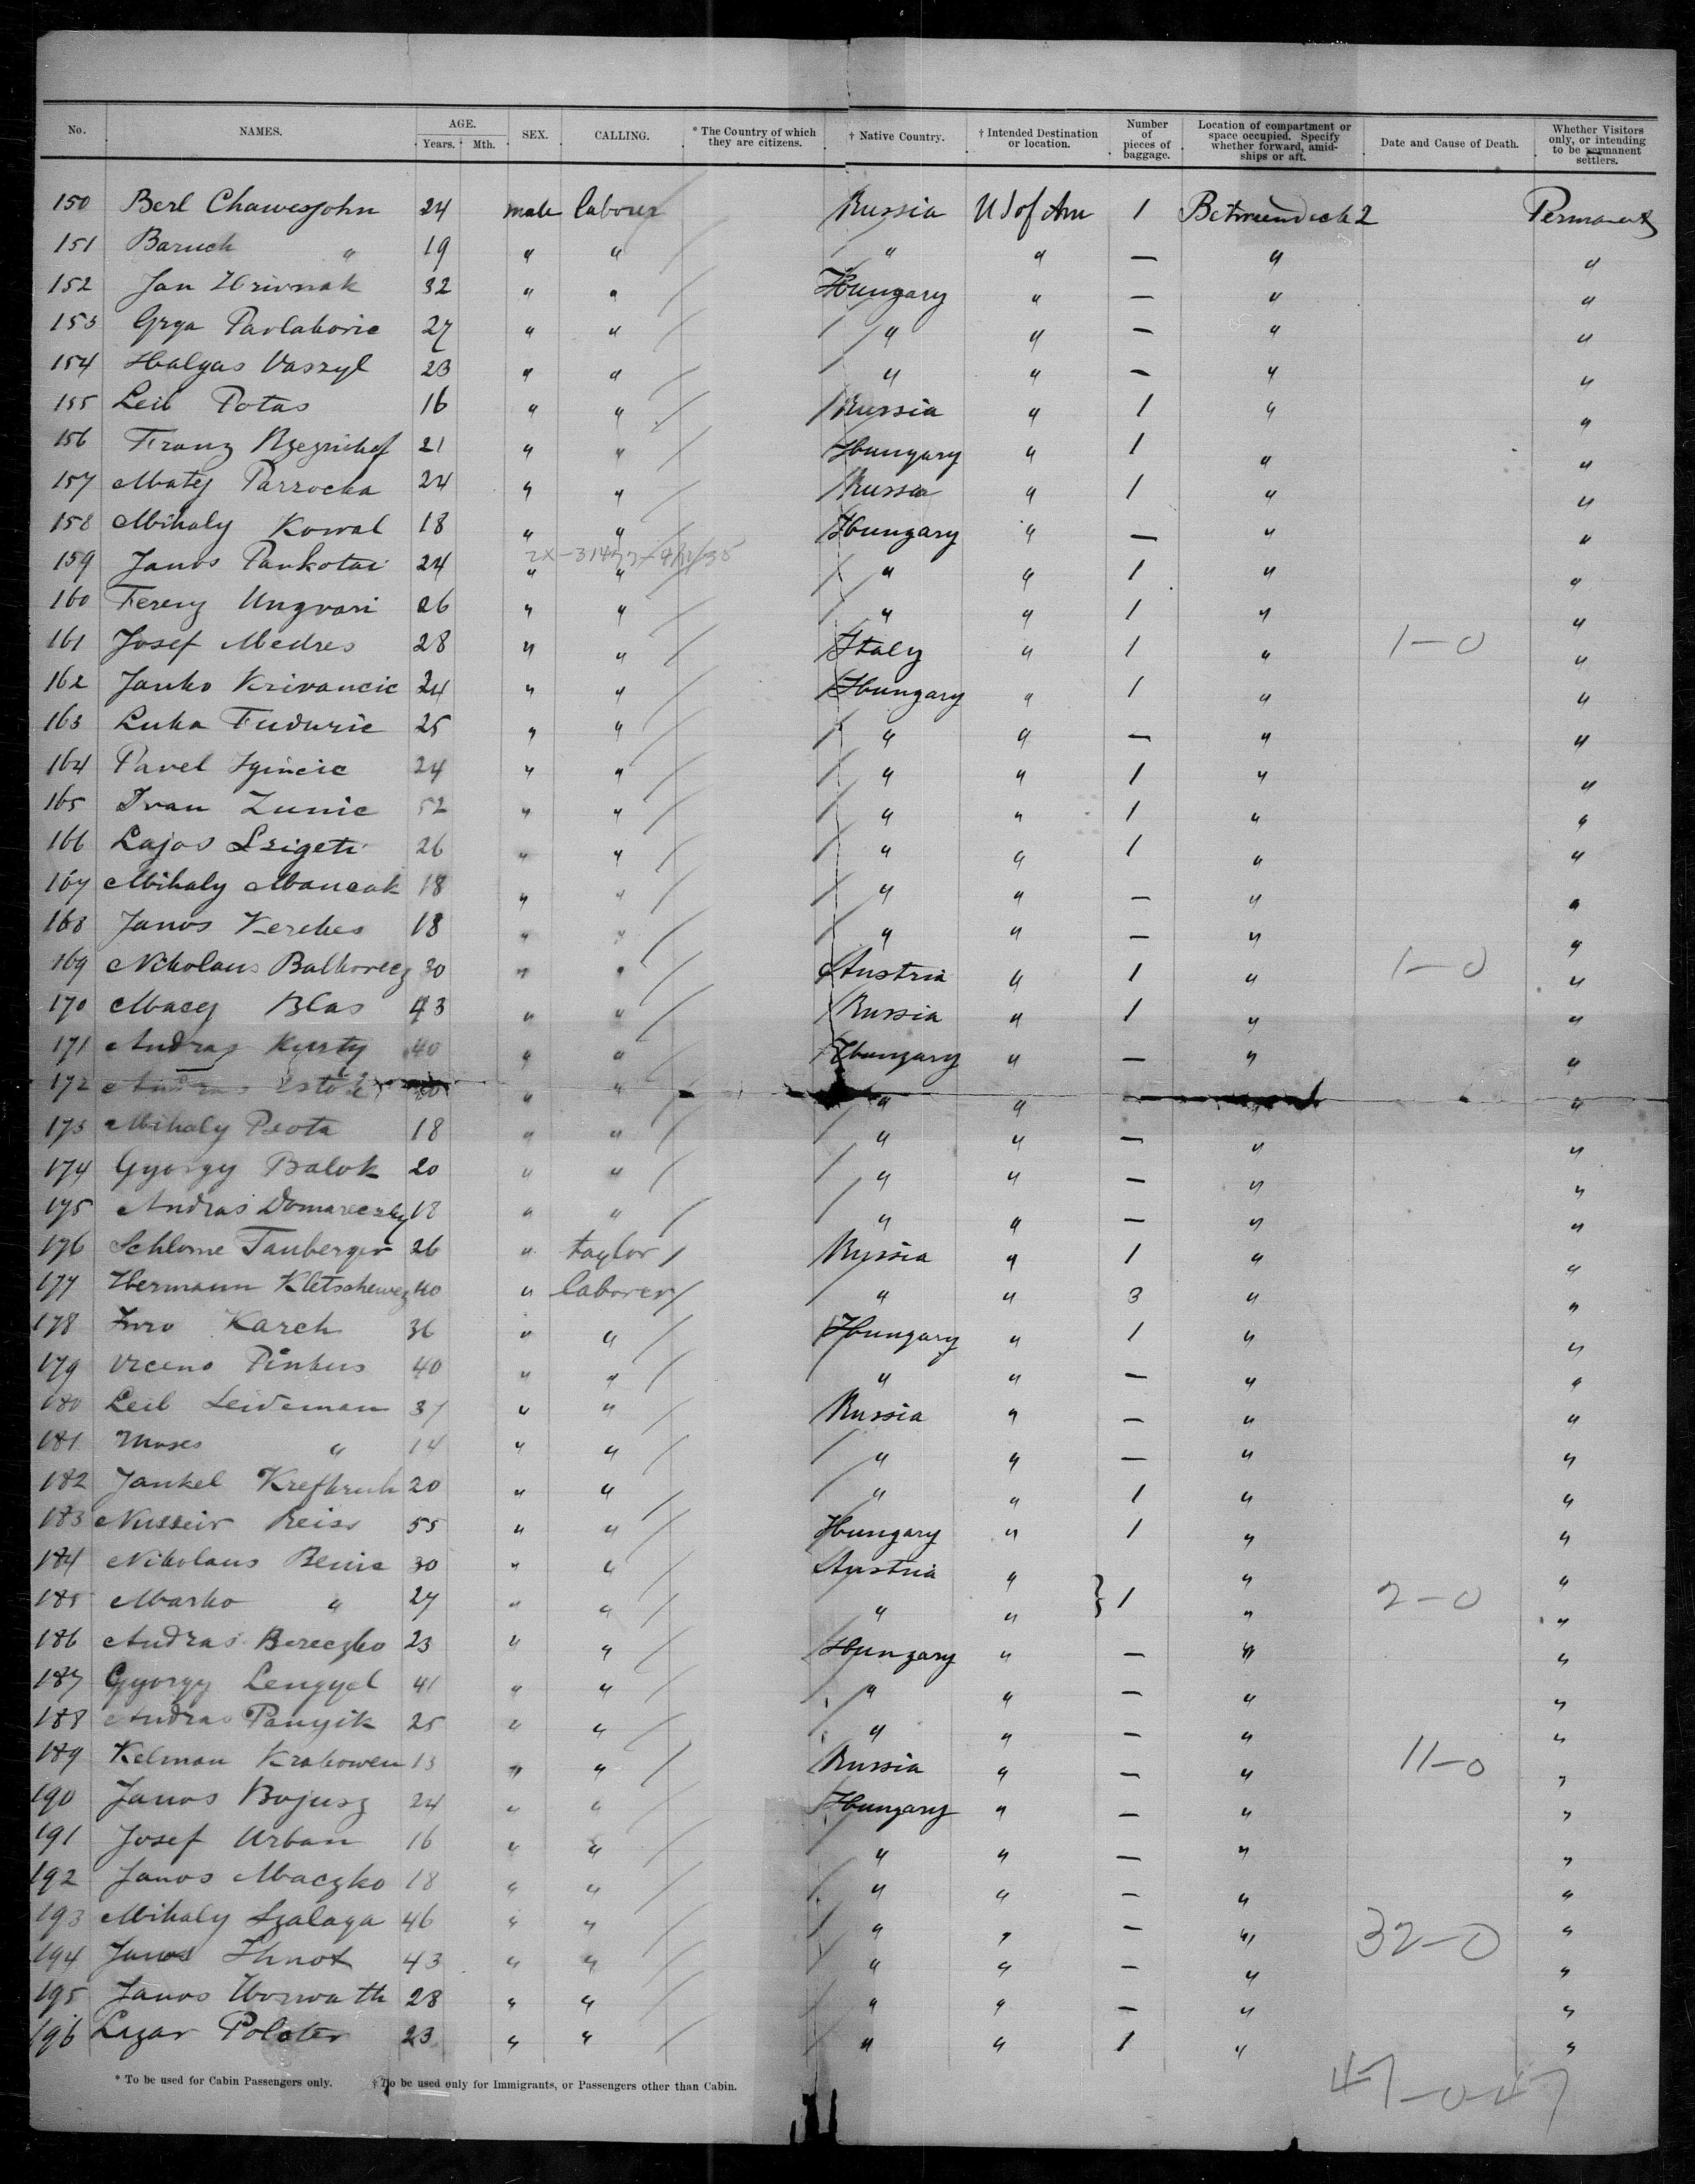 No. NAMES. AGE. Years. Mth. SEX. CALLING. * The Country of which they are citizens. † Native Country. † Intended Destination or location. Number of pieces of baggage. Location of compartment or space occupied. Specify whether forward, amidships or aft. Date and Cause of Death. Whether Visitors only, or intending to be permanent settlers.
150 Berl Chawesjohn 24 male laborer Russia U S of Am 1 Betweendeck 2 Permanent
151 Baruch " 19 " " " " — " "
152 Jan Hrivnak 32 " " Hungary " — " "
153 Grga Pavlakovic 27 " " " " — " "
154 Halgas Vaszyl 23 " " " " — " "
155 Leib Potas 16 " " Russia " 1 " "
156 Franz 21 " " Hungary " 1 " "
157 Matej Parzocha 24 " " Russia " 1 " "
158 Mihaly Kowal 18 " " Hungary " — " "
159 Janos Pankotai 24 " " " " 1 " "
160 Ferenz Ungvari 26 " " " " 1 " "
161 Josef Medres 28 " " Italy " 1 " 1-0 "
162 Janko Krivancic 24 " " Hungary " 1 " "
163 Luka Fuduric 25 " " " " — " "
164 Pavel 24 " " " " 1 " "
165 Ivan Zunic 52 " " " " 1 " "
166 Lajos Szigeti 26 " " " " 1 " "
167 Mihaly Mancak 18 " " " " — " "
168 Janos Kerekes 18 " " " " — " "
169 Nikolaus Balkovecz 30 " " Austria " 1 " 1-0 "
170 Macej Blas 43 " " Russia " 1 " "
171 Andras Kurty 40 " " Hungary " — " "
172 Andras " " " " "
173 Mihaly Peota 18 " " " " — " "
174 Gyorgy Balok 20 " " " " — " "
175 Andras Domareczky 18 " " " " — " "
176 Schlome Tauberger 26 " taylor Russia " 1 " "
177 Hermann 40 " laborer " " 3 " "
178 Karch 36 " " Hungary " 1 " "
179 Pinkus 40 " " " " — " "
180 Leib Seideman 37 " " Russia " — " "
181 Moses " 14 " " " " — " "
182 Jankel 20 " " " " 1 " "
183 Reiss 55 " " Hungary " 1 " "
184 Nikolaus Benic 30 " " Austria " " "
185 Marko " 27 " " " " } 1 " 2-0 "
186 Andras Bereczko 23 " " Hungary " — " "
187 Gyorgy Lengyel 41 " " " " — " "
188 Andras Panyik 25 " " " " — " "
189 Kelman Krakowen 13 " " Russia " — " 11-0 "
190 Janos Bojusz 24 " " Hungary " — " "
191 Josef Urban 16 " " " " — " "
192 Janos Maczko 18 " " " " — " "
193 Mihaly Szalaga 46 " " " " — " 32-0 "
194 Janos Ihnot 43 " " " " — " "
195 Janos Horwath 28 " " " " — " "
196 Lazar Poloter 23 " " " " 1 " "
* To be used for Cabin Passengers only. † To be used only for Immigrants, or Passengers other than Cabin.
47-0-47